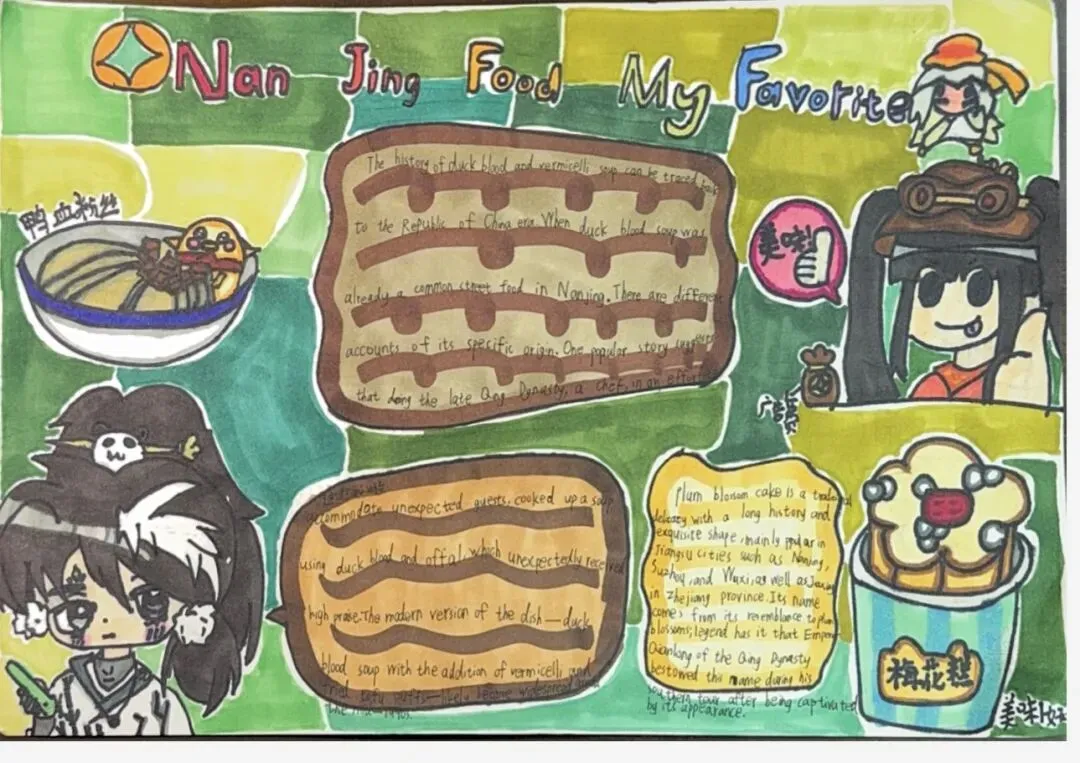 Nan Jing Food My Favorite
鸭血粉丝
The history of duck blood and vermicelli soup can be traced back
to the Republic of China era. When duck blood soup was
already a common street food in Nanjing. There are different
accounts of its specific origin. One popular story suggests
that doing the late Qing Dynasty, a chef, in an effort
accommodate unexpected guests, cooked up a soup
using duck blood and offal, which unexpectedly received
high praise. The modern version of the dish—duck
blood soup with the addition of vermicelli and
fried tofu puffs—likely became widespread
Plum blossom cake is a traditional
delicacy with a long history and
exquisite shape, mainly popular in
Jiangsu cities such as Nanjing,
Suzhou, and Wuxi, as well as Jiaxing
in Zhejiang province. Its name
comes from its resemblance to plum
blossoms; legend has it that Emperor
Qianlong of the Qing Dynasty
bestowed this name during his
southern tour after being captivated
by its appearance.
梅花糕
美味